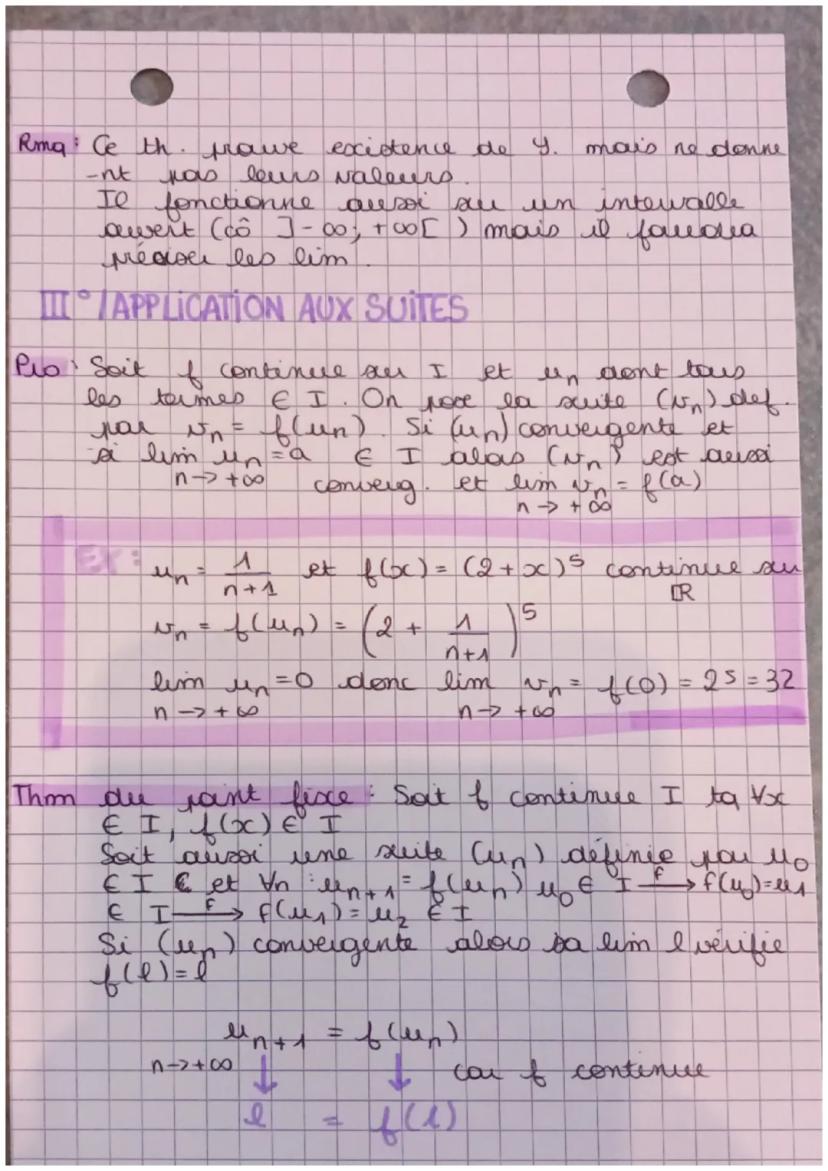 Rmq : Ce th. prouve existence de y. mais ne donne
-nt pas leurs valeurs.
Il fonctionne aussi su un intervalle
ouvert (cô ]-∞; +∞[ ) mais il faudra
préciser les lim.
III°/APPLICATION AUX SUITES
Pro : Soit f continue su I et un dont tous
les termes ∈ I. On pose la suite (vn) def.
par vn = f(un). Si (un) convergente et
si lim un = a ∈ I alors (vn) est aussi
n -> +∞ converg. et lim vn = f(a)
n -> +∞
EX :
un = 1/(n+1) et f(x) = (2+x)⁵ continue su
ℝ
vn = f(un) = (2 + 1/(n+1))⁵
lim un = 0 donc lim vn = f(0) = 2⁵ = 32
n -> +∞ n -> +∞
Thm du point fixe : Soit f continue I tq ∀x
∈ I, f(x) ∈ I
Soit aussi une suite (un) définie par u0
∈ I et ∀n : un+1 = f(un) u0 ∈ I —f→ f(u0) = u1
∈ I —f→ f(u1) = u2 ∈ I
Si (un) convergente alors sa lim l vérifie
f(l) = l
un+1 = f(un)
n -> +∞ ↓ ↓ car f continue
l = f(l)